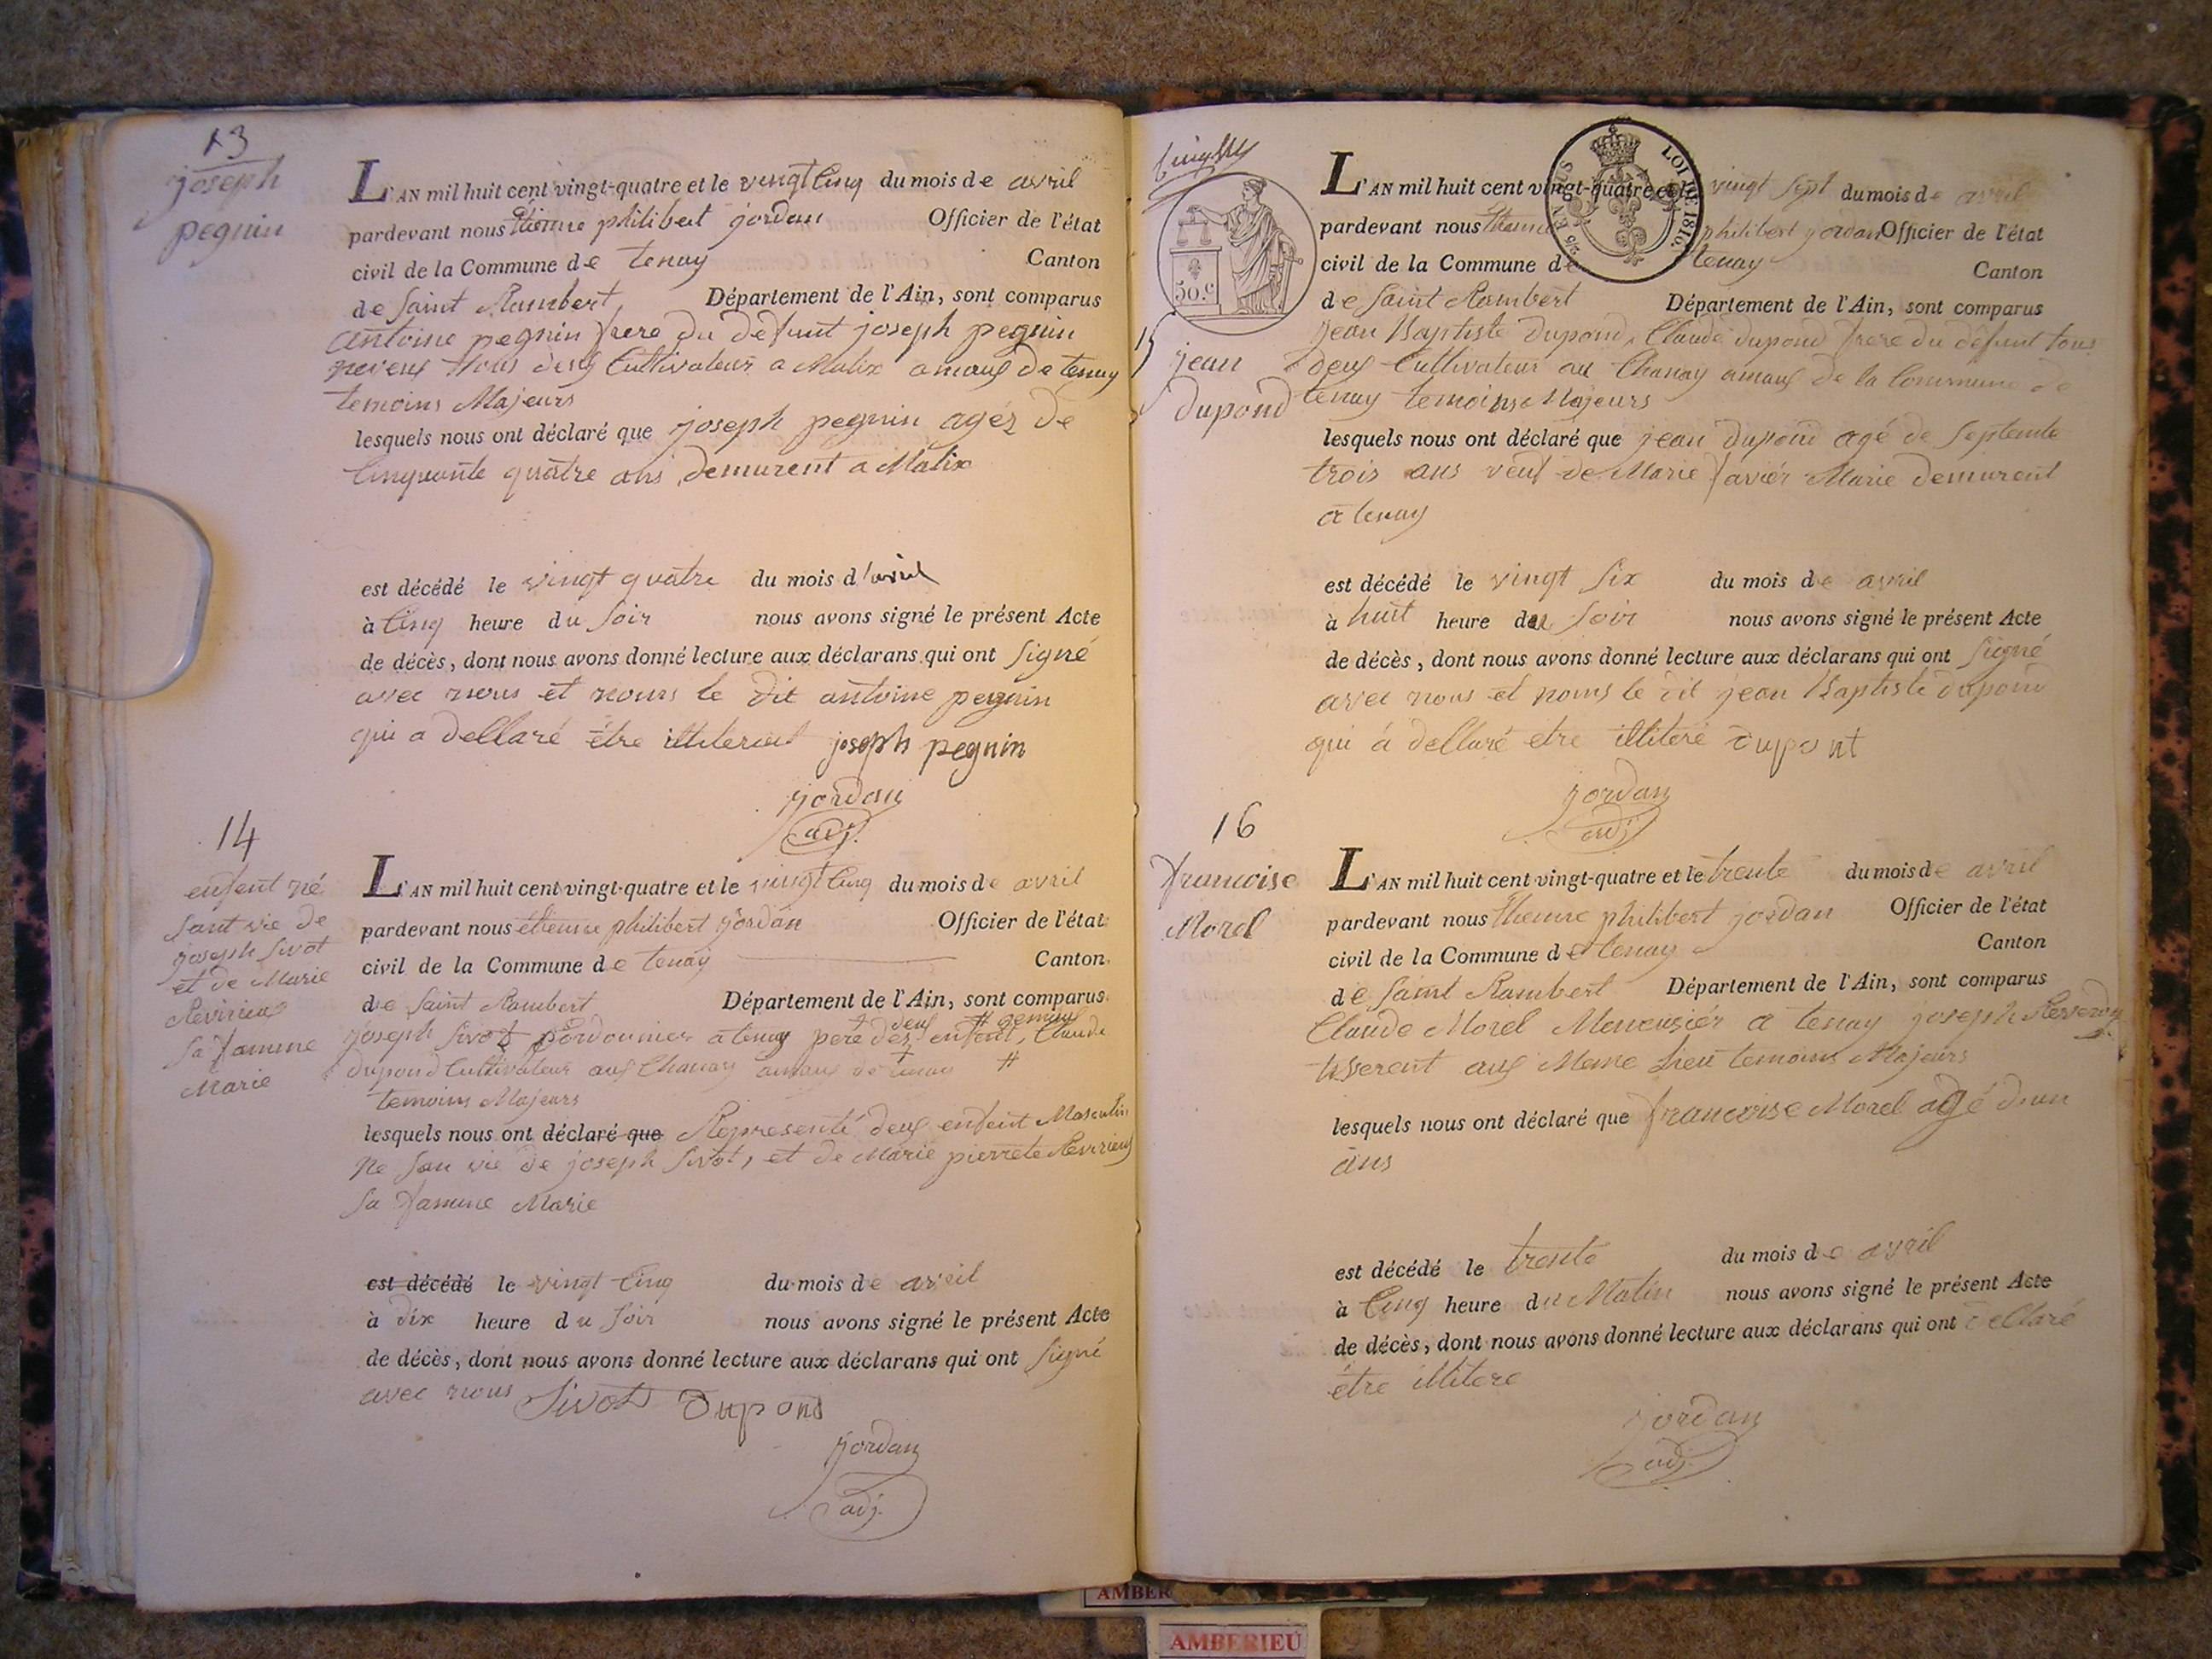 13
joseph
pegnin
L'AN mil huit cent vingt-quatre et le vingt Cinq du mois de avril
pardevant nous Etienne philibert jordan Officier de l'état
civil de la Commune de tenay Canton
de Saint Rambert Département de l'Ain, sont comparus
antoine pegnin frere du defunt joseph pegnin
neveux tous deux Cultivateur a Malix amaux de tenay
temoins Majeurs
lesquels nous ont déclaré que joseph pegnin agéz de
Cinquante quatre ans demurent a Malix
est décédé le vingt quatre du mois d'avril
à Cinq heure du Soir nous avons signé le présent Acte
de décès, dont nous avons donné lecture aux déclarans qui ont Signé
avec nous et noms le dit antoine pegnin
qui a dellaré étre illiterent joseph pegnin
jordan
adj.
14
enfent né
Sant vie de
joseph Sivot
et de Marie
Revirieux
Sa famme
Marie
L'AN mil huit cent vingt-quatre et le vingt Cinq du mois de avril
pardevant nous étienne philibert jordan Officier de l'état
civil de la Commune de tenay Canton
de Saint Rambert Département de l'Ain, sont comparus
deux # gemaux
joseph Sivot Cordonnier a tenay pere des enfent, Claude
dupond Cultivateur aux Chanay amaux de tenay #
temoins Majeurs
lesquels nous ont déclaré que Representé deux enfent Masculin
ne San vie de joseph Sivot, et de Marie pierrete Revirieux
Sa famme Marie
est décédé le vingt Cinq du mois de avril
à dix heure du Soir nous avons signé le présent Acte
de décès, dont nous avons donné lecture aux déclarans qui ont Signé
avec nous Sivot Dupond
jordan
adj.
50.c
LOI DE 1816
15
jean
dupond
L'AN mil huit cent vingt-quatre et le vingt Sept du mois de avril
pardevant nous philibert jordan Officier de l'état
civil de la Commune de tenay Canton
de Saint Rambert Département de l'Ain, sont comparus
jean Baptiste dupond, Claude dupond frere du defunt tous
deux Cultivateur au Chanay amaux de la Commune de
tenay temoins Majeurs
lesquels nous ont déclaré que jean dupond agé de Septente
trois ans veuf de Marie favier Marie demurent
a tenay
est décédé le vingt Six du mois de avril
à huit heure du Soir nous avons signé le présent Acte
de décès, dont nous avons donné lecture aux déclarans qui ont Signé
avec nous et noms le dit jean Baptiste dupond
qui á dellaré etre illiteré Dupont
jordan
adj
16
francoise
Morel
L'AN mil huit cent vingt-quatre et le trente du mois de avril
pardevant nous thienne philibert jordan Officier de l'état
civil de la Commune de tenay Canton
de Saint Rambert Département de l'Ain, sont comparus
Claude Morel Meneusiér a tenay joseph Reverdy
tisserent aux Meme Lieu temoins Majeurs
lesquels nous ont déclaré que francoise Morel agé d'un
ans
est décédé le trente du mois de avril
à Cinq heure du Matin nous avons signé le présent Acte
de décès, dont nous avons donné lecture aux déclarans qui ont dellaré
étre illitere
jordan
adj.
AMBER
AMBERIEU